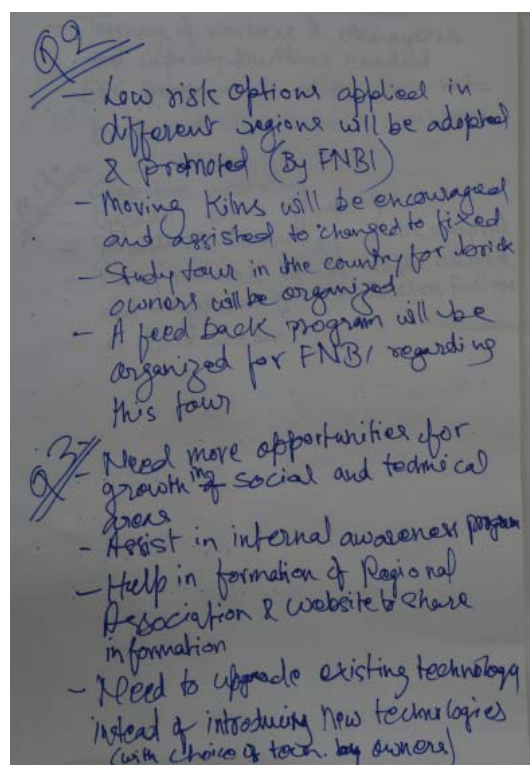 Q2
- Low risk options applied in
different regions will be adopted
& promoted (By FNBI)
- Moving Kilns will be encouraged
and assisted to changed to fixed
- Study tour in the country for brick
owners will be organized
- A feed back program will be
organized for FNBI regarding
this tour
Q3
- Need more opportunities for
growth in of social and technical
areas
- Assist in internal awareness program
- Help in formation of Regional
Association & website to share
information
- Need to upgrade existing technology
instead of introducing new technologies
(with choice of tech. by owners)